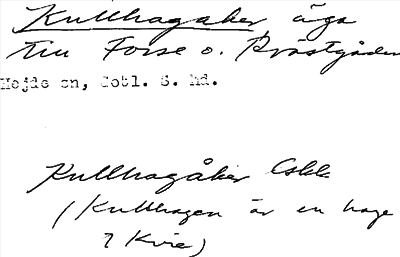 Kullhagaker äga
till Forse o. Prästgården
Hejde sn, Gotl. S. hd.
Kullhagåker
(Kullhagen är en hage